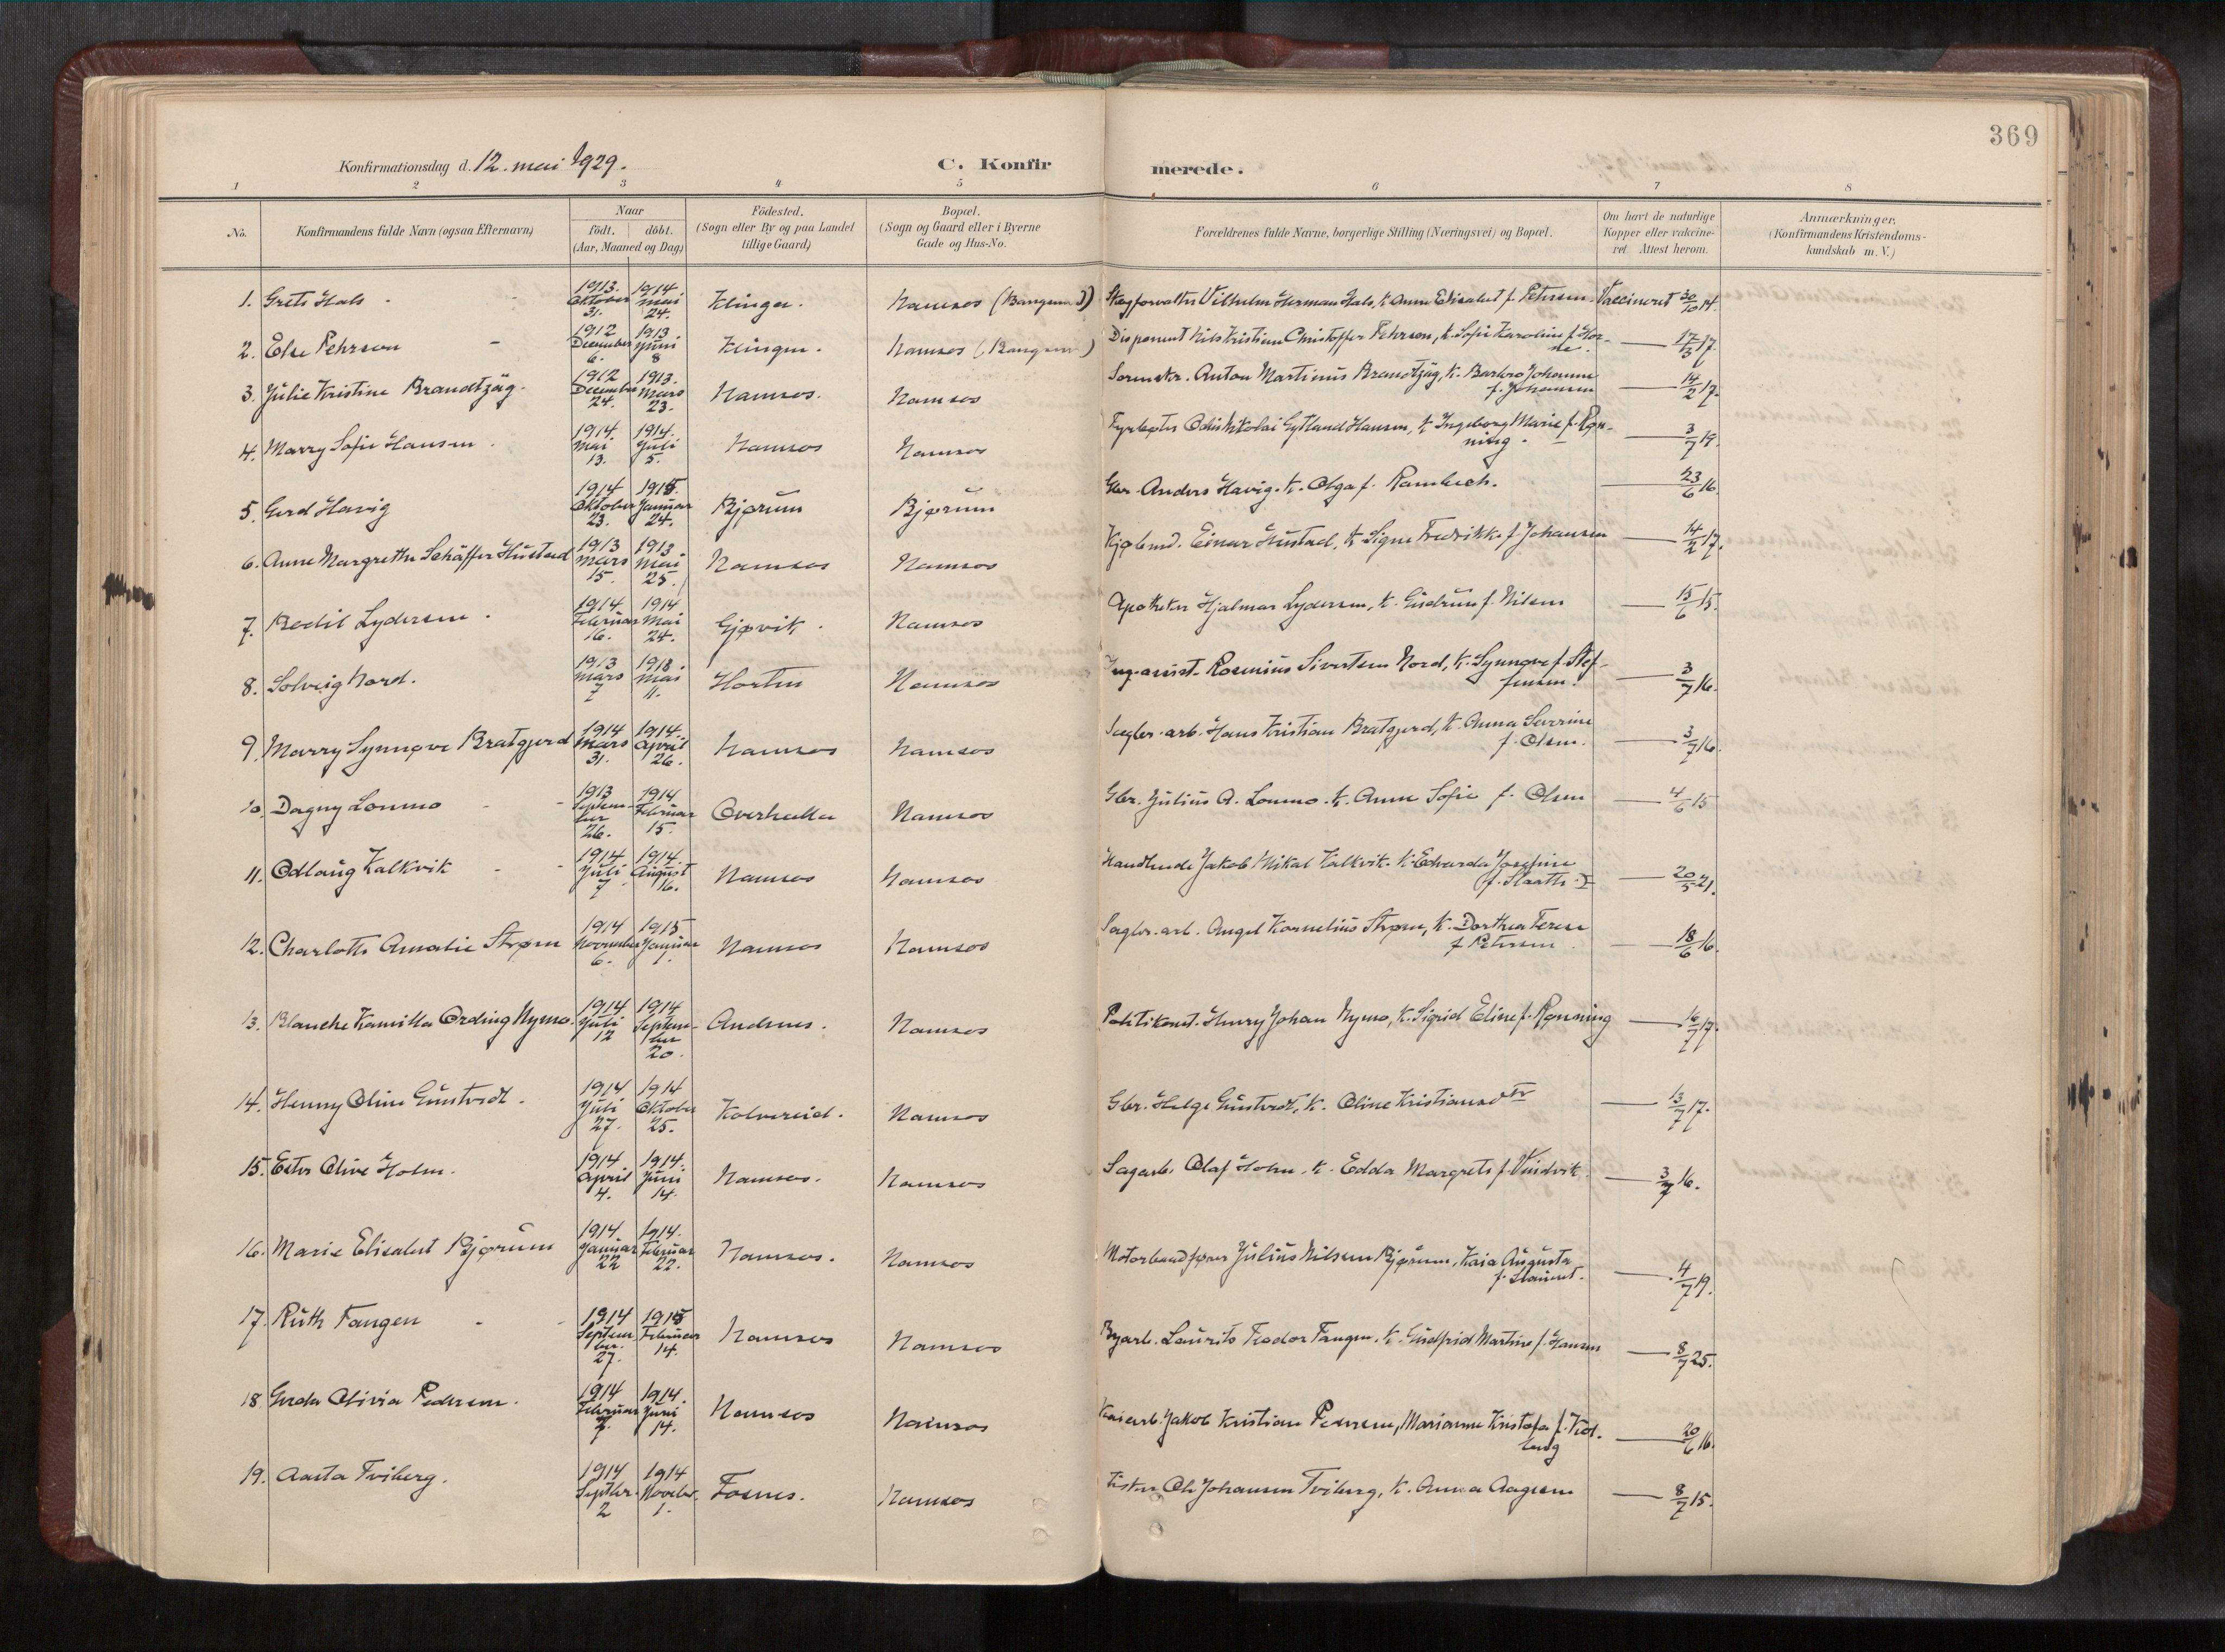 369
Konfirmationsdag d. 12. mai 1929.
C. Konfirmerede.
1 2 3 4 5 6 7 8
No.
Konfirmandens fulde Navn (ogsaa Efternavn)
Naar
födt. döbt.
(Aar, Maaned og Dag)
Födested.
(Sogn eller By og paa Landet
tillige Gaard)
Bopæl.
(Sogn og Gaard eller i Byerne
Gade og Hus-No.
Forældrenes fulde Navne, borgerlige Stilling (Næringsvei) og Bopæl.
Om havt de naturlige
Kopper eller vakcine-
ret. Attest herom.
Anmærkninger.
(Konfirmandens Kristendoms-
kundskab m. V.)
1. Grete Hals 1913. Oktober 31. 1914 mai 24. Klinger. Namsos (Bangsund) Vilhelm Herman Hals, k. Anna Elisabet f. Pehrson. Vaccineret 30/10 14.
2. Else Pehrson 1912 December 6. 1913 Juni 8 Klingen. Namsos (Bangsund) Disponent Nils Kristian Christoffer Pehrson, k. Sofie Karoline f. Hor-
ne. — 17/3 17.
3. Julie Kristine Brandtzäg 1912 December 24. 1913. Mars 23. Namsos. Namsos Anton Martinus Brandtzäg, k. Barbro Johanne
f. Johansen — 14/2 17.
4. Marry Sofie Hansen 1914. Mai 13. 1914. Juli 5. Namsos Namsos Fyrbøter Hansen, k. Ingeborg Marie f. Røn-
ning. — 3/7 19.
5. Gerd Havig 1914 Oktober 23. 1915. Januar 24. Bjørum Bjørum Gbr. Anders Havig. k. Olga f. — 23/6 16.
6. Anne Margrethe Schäffer Hustad 1913 Mars 15. 1913 Mai 25. Namsos Namsos Kjøbmd. Einar Hustad, k. Signe Fredrikke f. Johansen — 14/2 17.
7. Bodil Lydersen. 1914. Februar 16. 1914 Mai 24. Gjøvik. Namsos Apotheker Hjalmar Lydersen, k. Gudrun f. Nilsen — 15/6 15.
8. Solveig Nord. 1913 Mars 7 1913. Mai 11. Horten Namsos Rosenius Sivertsen Nord, k. Synnøve f. Stef-
fensen. — 3/7 16.
9. Marry Synnøve Bratgjerd 1914 Mars 31. 1914. April 26. Namsos Namsos Sagbr. arb. Hans Kristian Bratgjerd, k. Anna Severine
f. Olsen. — 3/7 16.
10. Dagny Lommo 1913 Septem-
ber 26. 1914 Februar 15. Overhalla Namsos Gbr. Julius A. Lommo. k. Anne Sofie f. Olsen — 4/6 15
11. Odlaug Kalkvik 1914 Juli 7 1914. August 16. Namsos Namsos Handlende Jakob Mikal Kalkvik. k. Edvarda Josefine
— 20/5 21.
12. Charlotte Amalie Strøm 1914 November 6. 1915 Januar 1. Namsos Namsos Sagbr. arb. Angel Kornelius Strøm, k. Dorthea Terese
f. Petersen. — 18/6 16.
13. Blanche Kamilla Ording Nymo. 1914 Juli 12 1914 Septem-
ber 20. Andenes. Namsos Politikonst. Henry Johan Nymo, k. Sigrid Eline f. Rønning — 16/7 17.
14. Henny Oline Gunstvedt. 1914. Juli 27. 1914 Oktober 25. Kolvereid. Namsos Gbr. Helge Gunstvedt, k. Oline Kristiansdtr — 13/7 17.
15. Ester Olive Holm. 1914 April 4. 1914. Juni 14. Namsos. Namsos Sagarb. Olaf Holm. k. Edda Margrete f. Vindvik. — 3/7 16.
16. Marie Elisabet Bjørum 1914. Januar 22 1914. Februar 22. Namsos. Namsos Motorbaadfører Julius Nilsen Bjørum, Kaia Augusta
— 4/7 19.
17. Ruth Fangen 1914 Septem
ber. 27. 1915 Februar 14. Namsos Namsos Byarb. Laurits Teodor Fangen. k. Gudfrid Martine f. Hansen — 8/7 25.
18. Gerda Olivia Pedersen. 1914 Februar 7. 1914. Juni 14. Namsos Namsos Kaiarb. Jakob Kristian Pedersen, Marianne Kristofa f. — 20/6 16.
19. Aasta Tviberg. 1914 Septbr. 2 1914 Novebr. 1. Fosnes. Namsos Fisker Ole Johansen Tviberg, k. Anna Aagesen — 8/7 15.